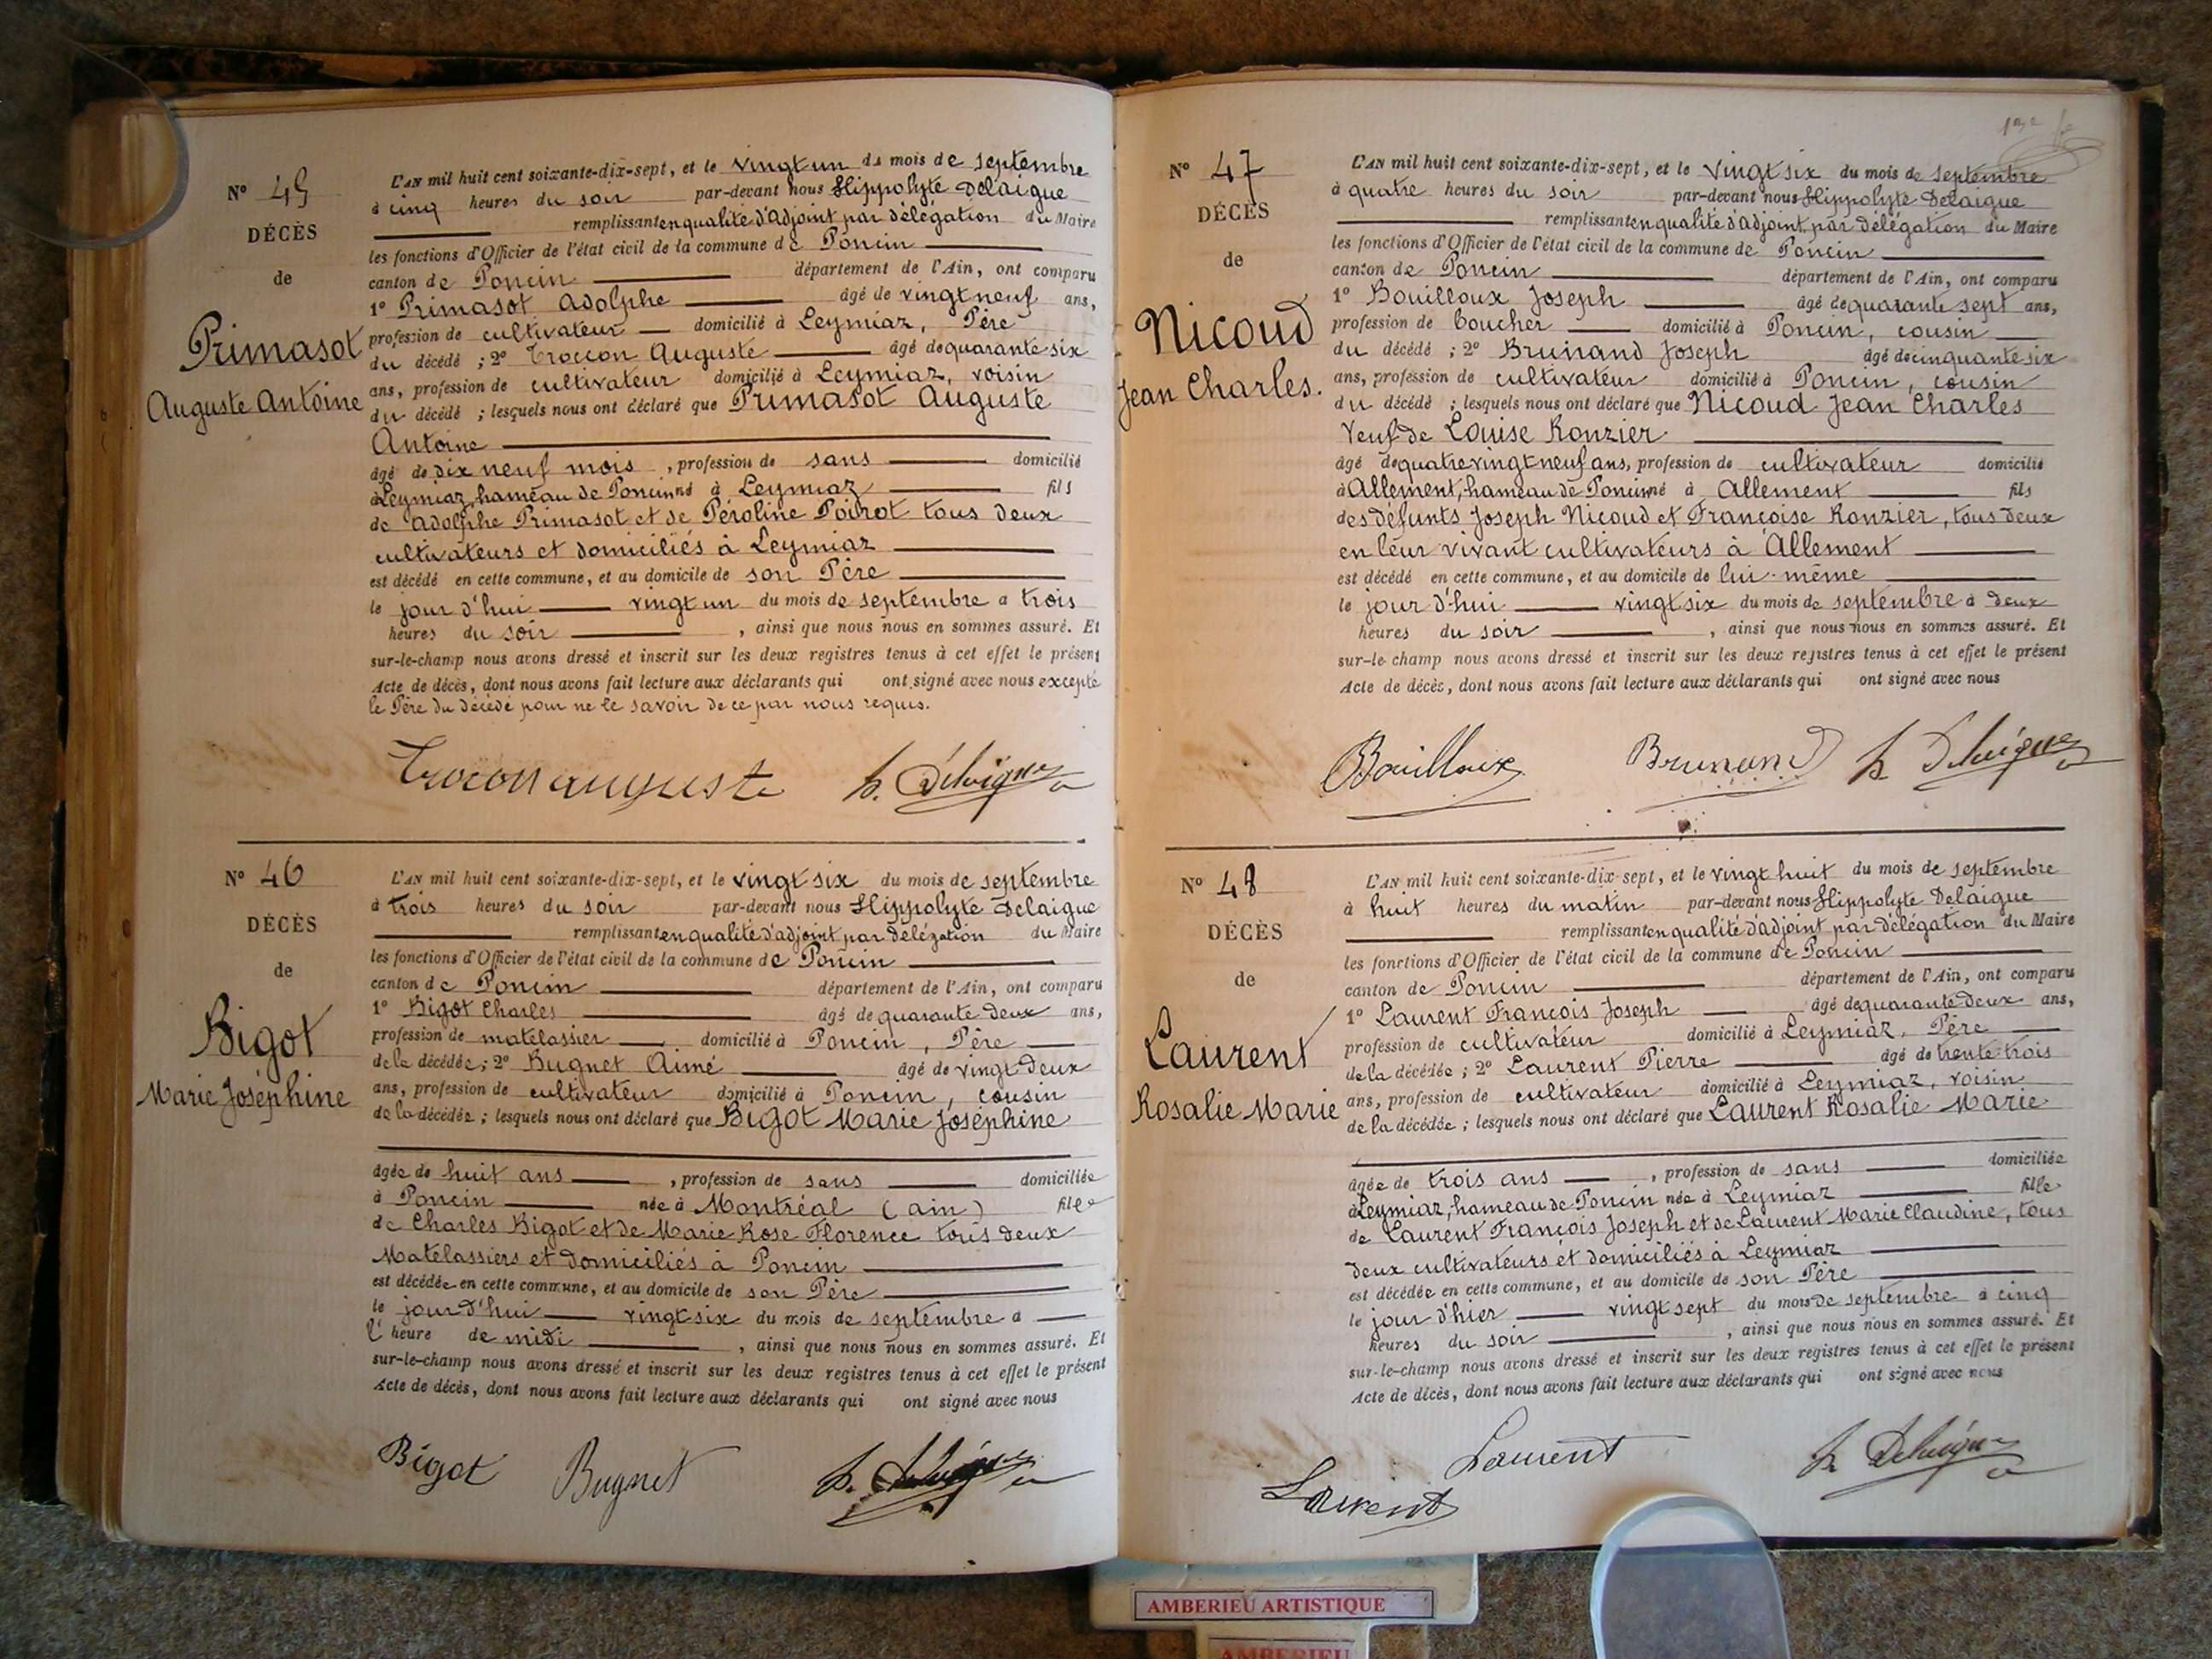 N° 45
DÉCÈS
de
Primasot
Auguste Antoine
L'AN mil huit cent soixante-dix-sept, et le vingt un du mois de septembre
à cinq heures du soir par-devant nous Hippolyte Delaigue
remplissant en qualité d'Adjoint par délégation du Maire
les fonctions d'Officier de l'état civil de la commune de Poncin
canton de Poncin département de l'Ain, ont comparu
1° Primasot Adolphe âgé de vingt neuf ans,
profession de cultivateur domicilié à Leymiaz, Père
du décédé ; 2° Troccon Auguste âgé de quarante six
ans, profession de cultivateur domicilié à Leymiaz, voisin
du décédé ; lesquels nous ont déclaré que Primasot Auguste
Antoine
âgé de dix neuf mois , profession de sans domicilié
à Leymiaz, hameau de Poncin né à Leymiaz fils
de Adolphe Primasot et de Péroline Poirot tous deux
cultivateurs et domiciliés à Leymiaz
est décédé en cette commune, et au domicile de son Père
le jour d'hui vingt un du mois de septembre à trois
heures du soir , ainsi que nous nous en sommes assuré. Et
sur-le-champ nous avons dressé et inscrit sur les deux registres tenus à cet effet le présent
Acte de décès, dont nous avons fait lecture aux déclarants qui ont signé avec nous excepté
le Père du décédé pour ne le savoir de ce par nous requis.
Trocon auguste h. Delaigue
N° 46
DÉCÈS
de
Bigot
Marie Joséphine
L'AN mil huit cent soixante-dix-sept, et le vingt six du mois de septembre
à trois heures du soir par-devant nous Hippolyte Delaigue
remplissant en qualité d'adjoint par délégation du Maire
les fonctions d'Officier de l'état civil de la commune de Poncin
canton de Poncin département de l'Ain, ont comparu
1° Bigot Charles âgé de quarante deux ans,
profession de matelassier domicilié à Poncin, Père
de la décédée ; 2° Bugnet Aimé âgé de vingt deux
ans, profession de cultivateur domicilié à Poncin, cousin
de la décédée ; lesquels nous ont déclaré que Bigot Marie Joséphine
âgée de huit ans , profession de sans domiciliée
à Poncin née à Montréal (ain) fille
de Charles Bigot et de Marie Rose Florence tous deux
Matelassiers et domiciliés à Poncin
est décédée en cette commune, et au domicile de son Père
le jour d'hui vingt six du mois de septembre à
l'heure de midi , ainsi que nous nous en sommes assuré. Et
sur-le-champ nous avons dressé et inscrit sur les deux registres tenus à cet effet le présent
Acte de décès, dont nous avons fait lecture aux déclarants qui ont signé avec nous
Bigot Bugnet h. Delaigue
N° 47
DÉCÈS
de
Nicoud
Jean Charles.
L'AN mil huit cent soixante-dix-sept, et le vingt six du mois de septembre
à quatre heures du soir par-devant nous Hippolyte Delaigue
remplissant en qualité d'adjoint par délégation du Maire
les fonctions d'Officier de l'état civil de la commune de Poncin
canton de Poncin département de l'Ain, ont comparu
1° Bouilloux Joseph âgé de quarante sept ans,
profession de boucher domicilié à Poncin, cousin
du décédé ; 2° Brunand Joseph âgé de cinquante six
ans, profession de cultivateur domicilié à Poncin, cousin
du décédé ; lesquels nous ont déclaré que Nicoud Jean Charles
Veuf de Louise Ronzier
âgé de quatre vingt neuf ans, profession de cultivateur domicilié
à Allement, hameau de Poncin né à Allement fils
des défunts Joseph Nicoud et Françoise Ronzier, tous deux
en leur vivant cultivateurs à Allement
est décédé en cette commune, et au domicile de lui-même
le jour d'hui vingt six du mois de septembre à deux
heures du soir , ainsi que nous nous en sommes assuré. Et
sur-le-champ nous avons dressé et inscrit sur les deux registres tenus à cet effet le présent
Acte de décès, dont nous avons fait lecture aux déclarants qui ont signé avec nous
Bouilloux Brunand h Delaigue
N° 48
DÉCÈS
de
Laurent
Rosalie Marie
L'AN mil huit cent soixante-dix-sept, et le vingt huit du mois de septembre
à huit heures du matin par-devant nous Hippolyte Delaigue
remplissant en qualité d'adjoint par délégation du Maire
les fonctions d'Officier de l'état civil de la commune de Poncin
canton de Poncin département de l'Ain, ont comparu
1° Laurent François Joseph âgé de quarante deux ans,
profession de cultivateur domicilié à Leymiaz, Père
de la décédée ; 2° Laurent Pierre âgé de trente trois
ans, profession de cultivateur domicilié à Leymiaz, voisin
de la décédée ; lesquels nous ont déclaré que Laurent Rosalie Marie
âgée de trois ans , profession de sans domiciliée
à Leymiaz, hameau de Poncin née à Leymiaz fille
de Laurent François Joseph et de Laurent Marie Claudine, tous
deux cultivateurs et domiciliés à Leymiaz
est décédée en cette commune, et au domicile de son Père
le jour d'hier vingt sept du mois de septembre à cinq
heures du soir , ainsi que nous nous en sommes assuré. Et
sur-le-champ nous avons dressé et inscrit sur les deux registres tenus à cet effet le présent
Acte de décès, dont nous avons fait lecture aux déclarants qui ont signé avec nous
Laurent Laurent h Delaigue
AMBERIEU ARTISTIQUE
AMBERIEU